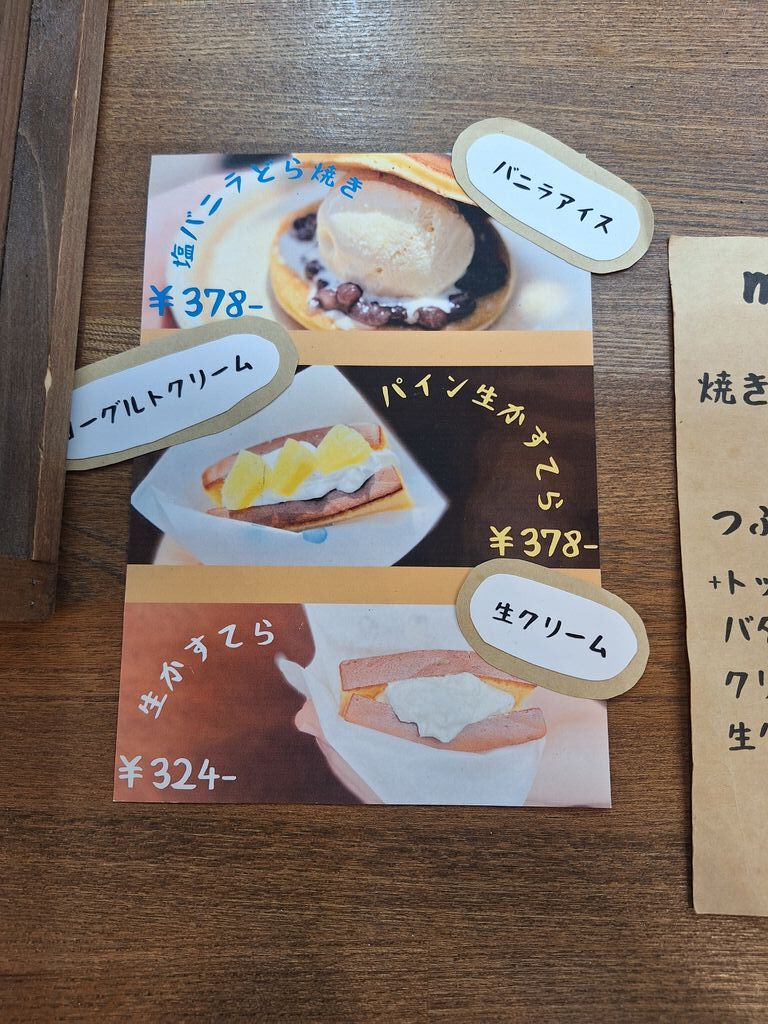 塩バニラどら焼き
バニラアイス
¥378-
ーグルトクリーム
パイン生かすてら
¥378-
生クリーム
生かすてら
¥324-
焼き
つぶ
+トッ
バタ
クリ
生ク